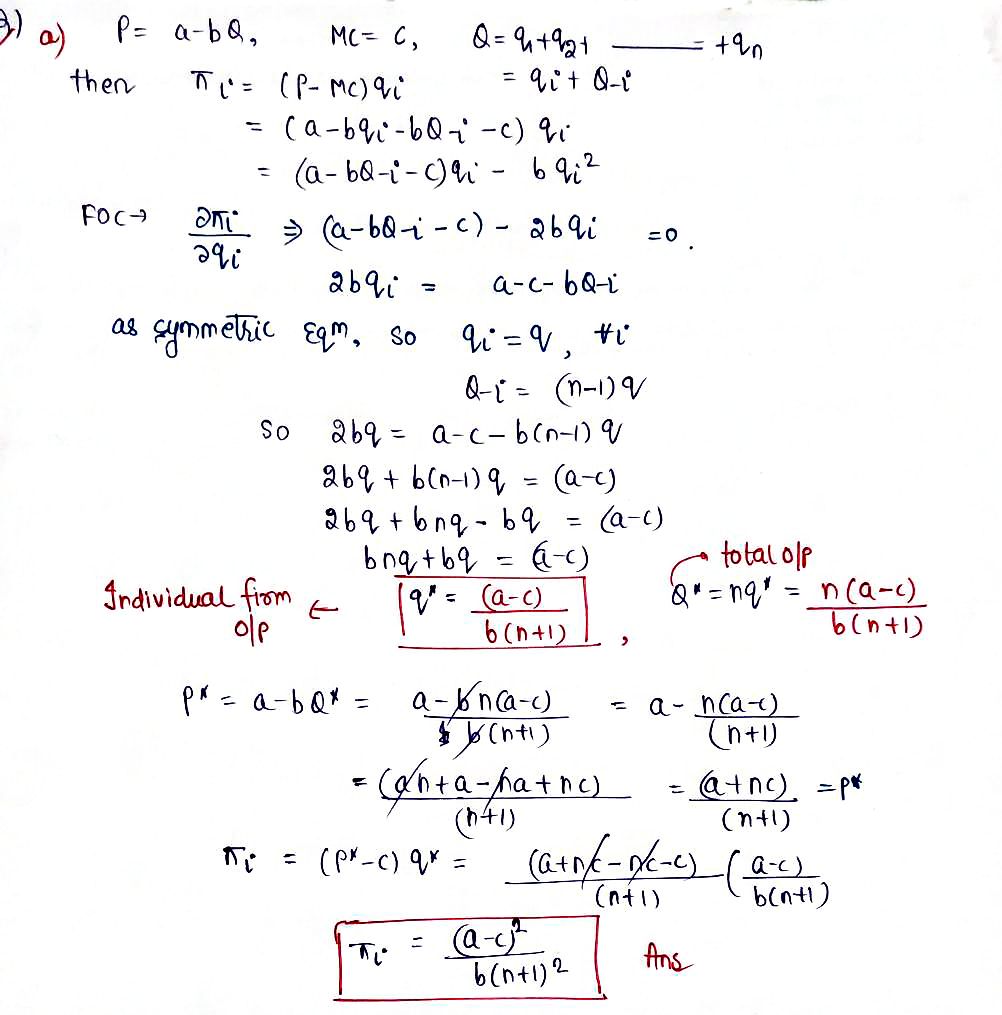 2) a) P = a-bQ, MC = C, Q = q1+q2+ ——— +qn
then πi = (P-MC)qi = qi + Q-i
= (a-bqi-bQ-i-c) qi
= (a-bQ-i-c)qi - bqi²
FOC→ ∂πi/∂qi ⇒ (a-bQ-i-c) - 2bqi = 0.
2bqi = a-c-bQ-i
as symmetric Eqm, so qi = q, ∀i
Q-i = (n-1)q
So 2bq = a-c-b(n-1)q
2bq + b(n-1)q = (a-c)
2bq + bnq - bq = (a-c)
bnq+bq = (a-c)
total o/p
Individual firom o/p ← q* = (a-c)/b(n+1) , Q* = nq* = n(a-c)/b(n+1)
P* = a-bQ* = a-bn(a-c)/b(n+1) = a- n(a-c)/(n+1)
= (an+a-na+nc)/(n+1) = (a+nc)/(n+1) = P*
πi = (P*-c) q* = (a+nc-nc-c)/(n+1) (a-c/b(n+1))
πi = (a-c)²/b(n+1)² Ans